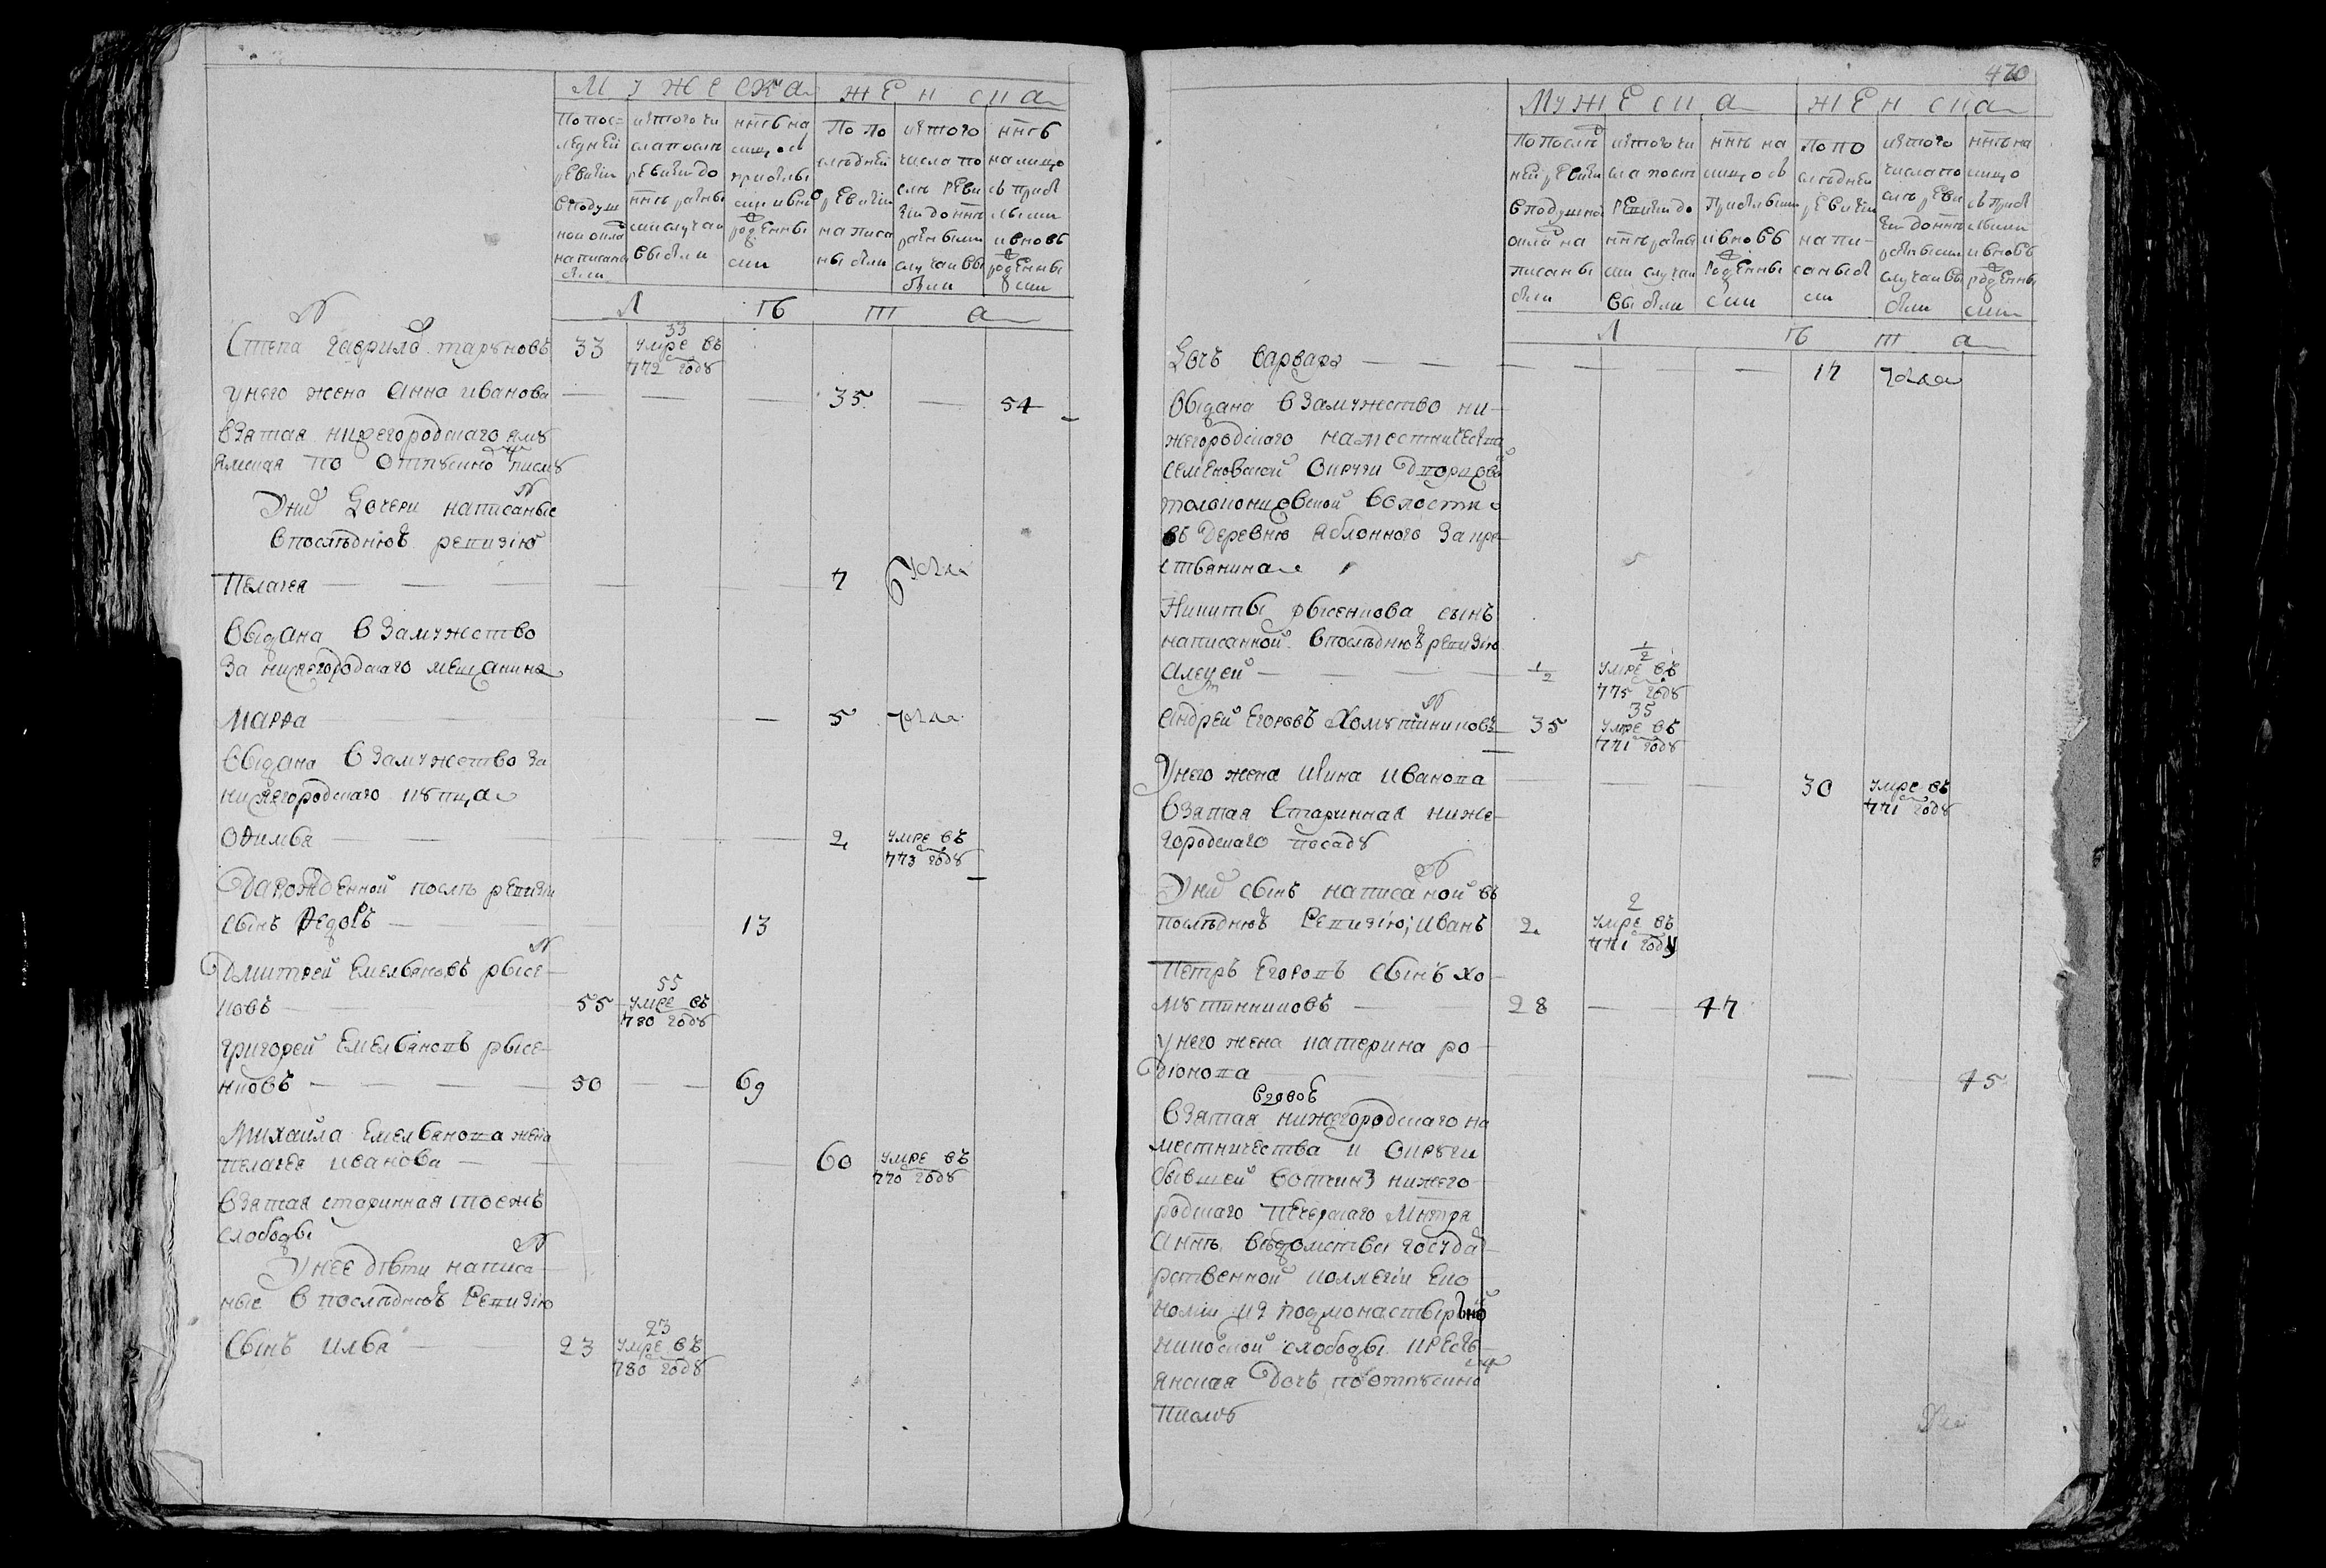 МУЖЕСКА ЖЕНСКА
По пос=
ледней
ревизии
в подуш
ной окла
написаны
были
из того чи
сла после
ревизии до
ннѣ разны
ми случаи
выбыли
ннѣ на
лицо съ
прибылы
ми и вно
рожденны
ми
По по
следней
ревизіи
написа
ны были
из того
числа по
слѣ реви
зіи до ннѣ
разными
случаи вы
были
ннѣ
на лицо
съ приб
лыми
и вновь
рожденны
ми
Л ѣ т а
Степа Гаврилъ Тарѣновъ 33 33 умре въ 772 годѣ
у него жена Анна Иванова — — — 35 — 54
взятая нижегородскаго ямѣ
ямская по отпускно писмѣ
У них дочери написаные
в последнюю ревизію
Пелагея — 7
выдана в замужство
за нижегородскаго мещанина
Марѳа — 5
выдана в замужество за
нижегородскаго купца
Оѳимья — 2 умре въ 773 годѣ
Да рожденной послѣ ревизіи
сынъ Ѳедоръ — 13
Дмитрей Емельяновъ рысе-
ковъ — 55 55 умре въ 780 годѣ
Григорей Емельяновъ рысе-
нковъ — 50 — 69
Михаила Емельянова жена
Пелагея Иванова — 60 умре въ 770 годѣ
взятая старинная тоежъ
слободы
У нее дѣти написа-
ные в последнюю ревизію
Сынъ Илья — 23 23 умре въ 780 годѣ
470
МУЖЕСКА ЖЕНСКА
По послѣ
ней ревизи
в подушно
окла на
писаны
были
из того чи
сла посл
ревизии до
ннѣ разны
ми случаи
выбыли
ннѣ на
лицо съ
прибылыми
и вновь
рожденны
ми
По по
следней
ревизіи
напи-
саны бы
ли
из того
числа по
слѣ реви
зіи до ннѣ
разными
случаи вы
были
ннѣ на
лицо
съ приб
лыми
и вновь
рожденны
ми
Л ѣ т а
Дочь Варвара — 17
выдана в замужество ни-
жегородскаго наместничества
семеновской округи дворцовой
толоконцовской волости
въ деревню Яблонного за кре-
стьянина
Никиты рысенкова сынъ
написанной в последнюю ревизію
Алеѯей — 1/2 1/2 умре въ 775 годѣ
Андрей Егоровъ Хомутинниковъ 35 35 умре въ 771 годѣ
У него жена Ирина Иванова — 30 умре въ 771 годѣ
взятая старинная ниже-
городскаго посадѣ
У них сынъ написаной въ
последнюю ревизію; Иванъ 2 2 умре въ 771 году
Петръ Егоровъ сынъ хо-
мутинниковъ — 28 — 47
у него жена Катерина Ро-
діонова — 45
вдовою
взятая нижегородскаго на
местничества и округи
бывшей вотчины нижего
родскаго Печерскаго Мнтря
а ннѣ ведомства государ-
рственной коллегіи эко
номіи из подмонастырьно
никоской слободы кресть-
янская дочь по отпускно
писмѣ